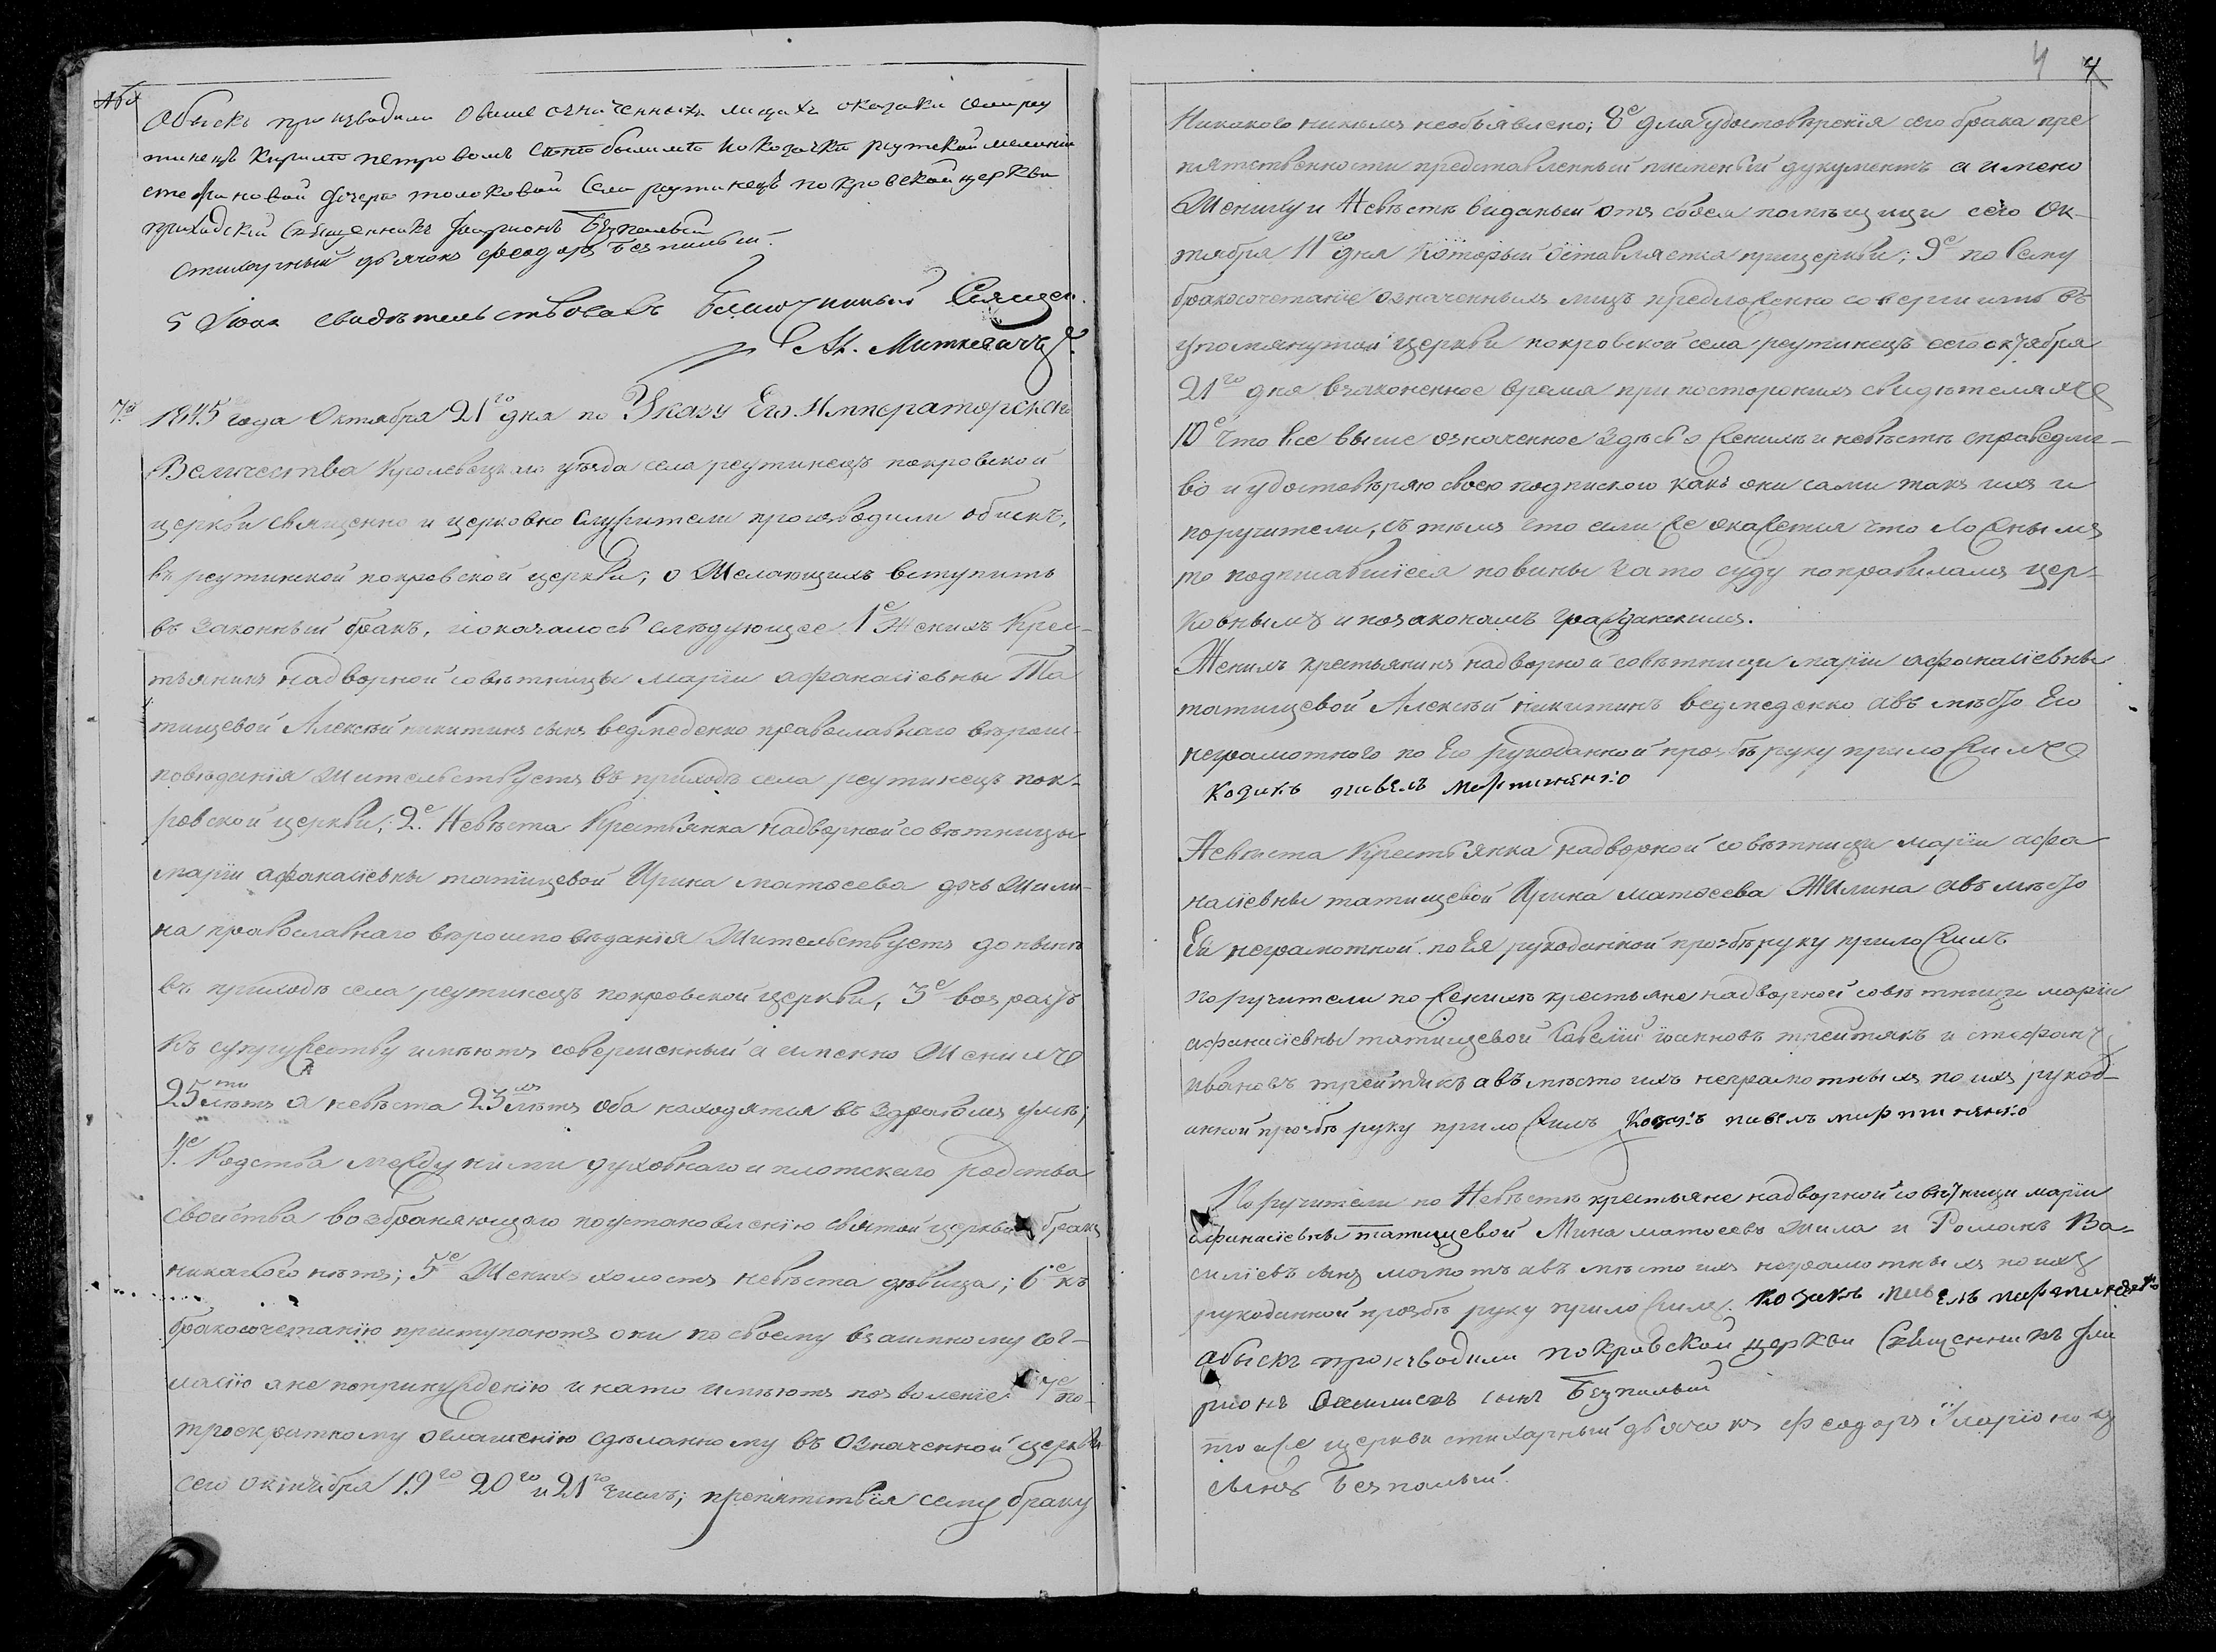 Обыскъ производили овыше означенныхъ лицахъ о козаки села реу
тинецъ Кирилѣ петровомъ и козачки реутской мелании
стефановой дочере толоковой Села реутинецъ покровской церкви
приходскій Священникъ Иларионъ Безпалый
стихарный дьячокъ феодоръ безпалый.
5 Июня свидѣтельствовалъ благочинный Священ.
Ал. Миткевичъ.
7й
1845 года Октября 21го дня по Указу Его Императорскаго
Величества Кролевецкаго уѣзда села реутинецъ покровской
церкви священно и церковно служители производили обискъ,
въ реутинской покровской церкви, о Желающихъ вступить
въ законный бракъ, и оказалось слѣдующее 1е Женихъ Крес-
тьянинъ надворной совѣтницы марїи афанасїевны Та
тищевой Алексѣй никитинъ сынъ ведмеденко православнаго вѣроис-
повѣданїя Жительствуетъ въ приходѣ села реутинецъ пок-
ровской церкви; 2е Невѣста Крестьянка надворной совѣтницы
марїи афанасїевны татищевой Ирина матѳеева дочь Жили-
на православнаго вѣроисповѣданїя Жительствуетъ донынѣ
въ приходѣ села реутинецъ покровской церкви, 3е возрастъ
къ супружеству имѣютъ совершенный а именно Женихъ
25ти лѣтъ а невѣста 23хъ лѣтъ оба находятся въ здравомъ умѣ;
4е Родства между ними духовнаго и плотскаго родства
свойства возбраняющаго поустановленїю святой церкви бракъ
никакого нѣтъ; 5е Женихъ холостъ невѣста дѣвица; 6е къ
бракосочетанїю приступаютъ они по своему взаимному сог-
ласїю ане попринужденїю и нато имѣютъ позволенїе: 7е по-
троекратному оглашенїю сдѣланному въ означенной церкви
сего октября 19го 20го и 21го чиселъ; препятствїя сему браку
4 4
Никакого никѣмъ необъявлено; 8е для удостовѣрения сего брака пре
пятственности представленный писменый дукументъ а имено
Жениху и Невѣстѣ виданый отъ своея помѣщици сего Ок-
тября 11го дня который оставляется прицеркви; 9е по Сему
бракосочетанїе означенныхъ лицъ предложенно совершить въ
упомянутой церкви покровской села реутинецъ сего октября
21го дня взаконенное время при постороннихъ свидѣтеляхъ
10е Что все выше означенное здѣсь о женихѣ и невѣстѣ справедли-
во и удостовѣряю своею подпискою какъ они сами такъ ихъ и
поручители, съ тѣмъ что если же окажется что ложнымъ
то подписавшїеся повины зато суду поправиламъ цер-
ковнымъ и позаконамъ гражданскимъ.
Женихъ крестьянинъ надворной совѣтници марїи афанасїевны
татищевой Алексѣй никитинъ ведмеденко авъ мѣсто Его
неграмотного по Его рукоданной прозбѣ руку приложилъ
Козакъ павелъ мартиненко
Невѣста Крестьянка надворной совѣтници марїи афа
насїевны татищевой Ирина матѳеева Жилина авъ мѣсто
Ей неграмотной по Ея рукоданной прозбѣ руку приложилъ
поручители по женихѣ крестьяне надворной совѣтници марїи
афанасїевны татищевой Савелїй їоанновъ третякъ и стефанъ
ивановъ третякъ авъ мѣсто ихъ неграмотныхъ по ихъ рукод-
анной прозбѣ руку приложилъ Козакъ павелъ мартиненко
Поручители по Невѣстѣ крестьяне надворной совѣтници марїи
афанасїевны татищевой Мина матѳеевъ жила и Романъ Ва-
силїевъ сынъ авъ мѣсто ихъ неграмотныхъ по ихъ
рукоданной прозбѣ руку приложилъ. Козакъ павелъ мартиненко
Обыскъ производили покровской церкви Священникъ Ила
рионъ сынъ Безпалый
тоя же церкви стихарный дьячокъ Феодоръ Иларїоновъ
сынъ Безпалый.